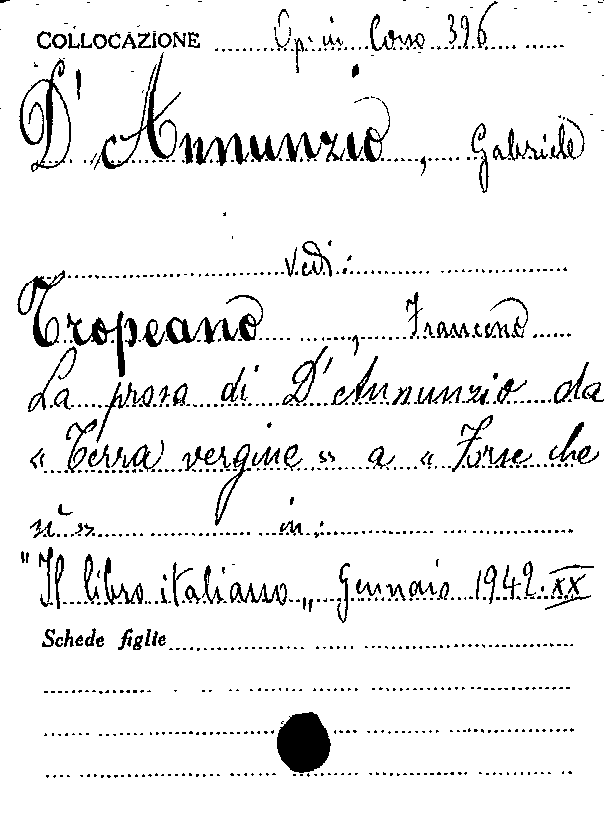 COLLOCAZIONE Op. in Corso 396
D'Annunzio, Gabriele
vedi:
Tropeano, Francesco
La prosa di D'Annunzio da
« Terra vergine » a « Forse che
sì » in:
"Il libro italiano„ Gennaio 1942.XX
Schede figlie